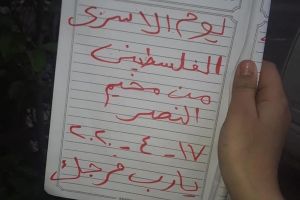 يوم الاسرى
الفلسطيني
من مخيم
النصر
١٧ - ٤ - ٢٠٢٠
يارب فرجك